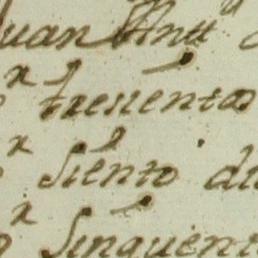 Juan Antt
tresientos
siento di
sinquent